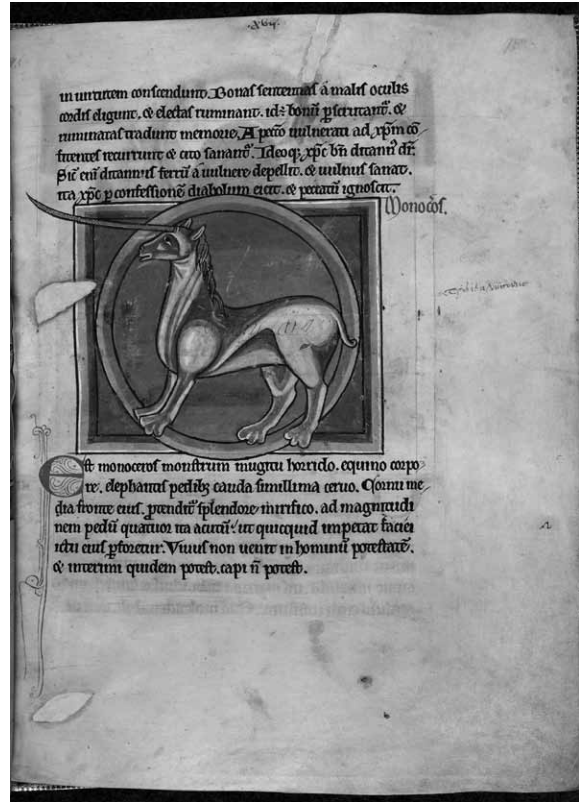 in uirtutem conscendunt. Bonas sentencias a malis oculis
cordis eligunt. & electas ruminant. id÷ bonū pscrutant᷑. &
ruminatas tradunt memorie. A pctō uulnerati ad xp̄m cō
fitentes recurrunt & cito sanant᷑. Ideoq; xp̄c bn̄ ditann᷒ dr̄.
Sic̄ eni ditannus ferrū a uulnere depellit. & uulnus sanat.
ita xp̄c p confessionē diabolum eicit. & peccatū ignoscit.
Monocos̄.
Est monoceros monstrum mugitu horrido. equino corpo
re. elephantis pedibȝ cauda simillima ceruo. Cornu me
dia fronte eius ptendit᷑ splendore mirifico. ad magnitudi
nem pedū quatuor ita acutū. ut quicquid impetat faciei
ictu eius pforetur. Viuus non uenit in hominū potestatē.
& interimi quidem potest. capi n̄ potest.